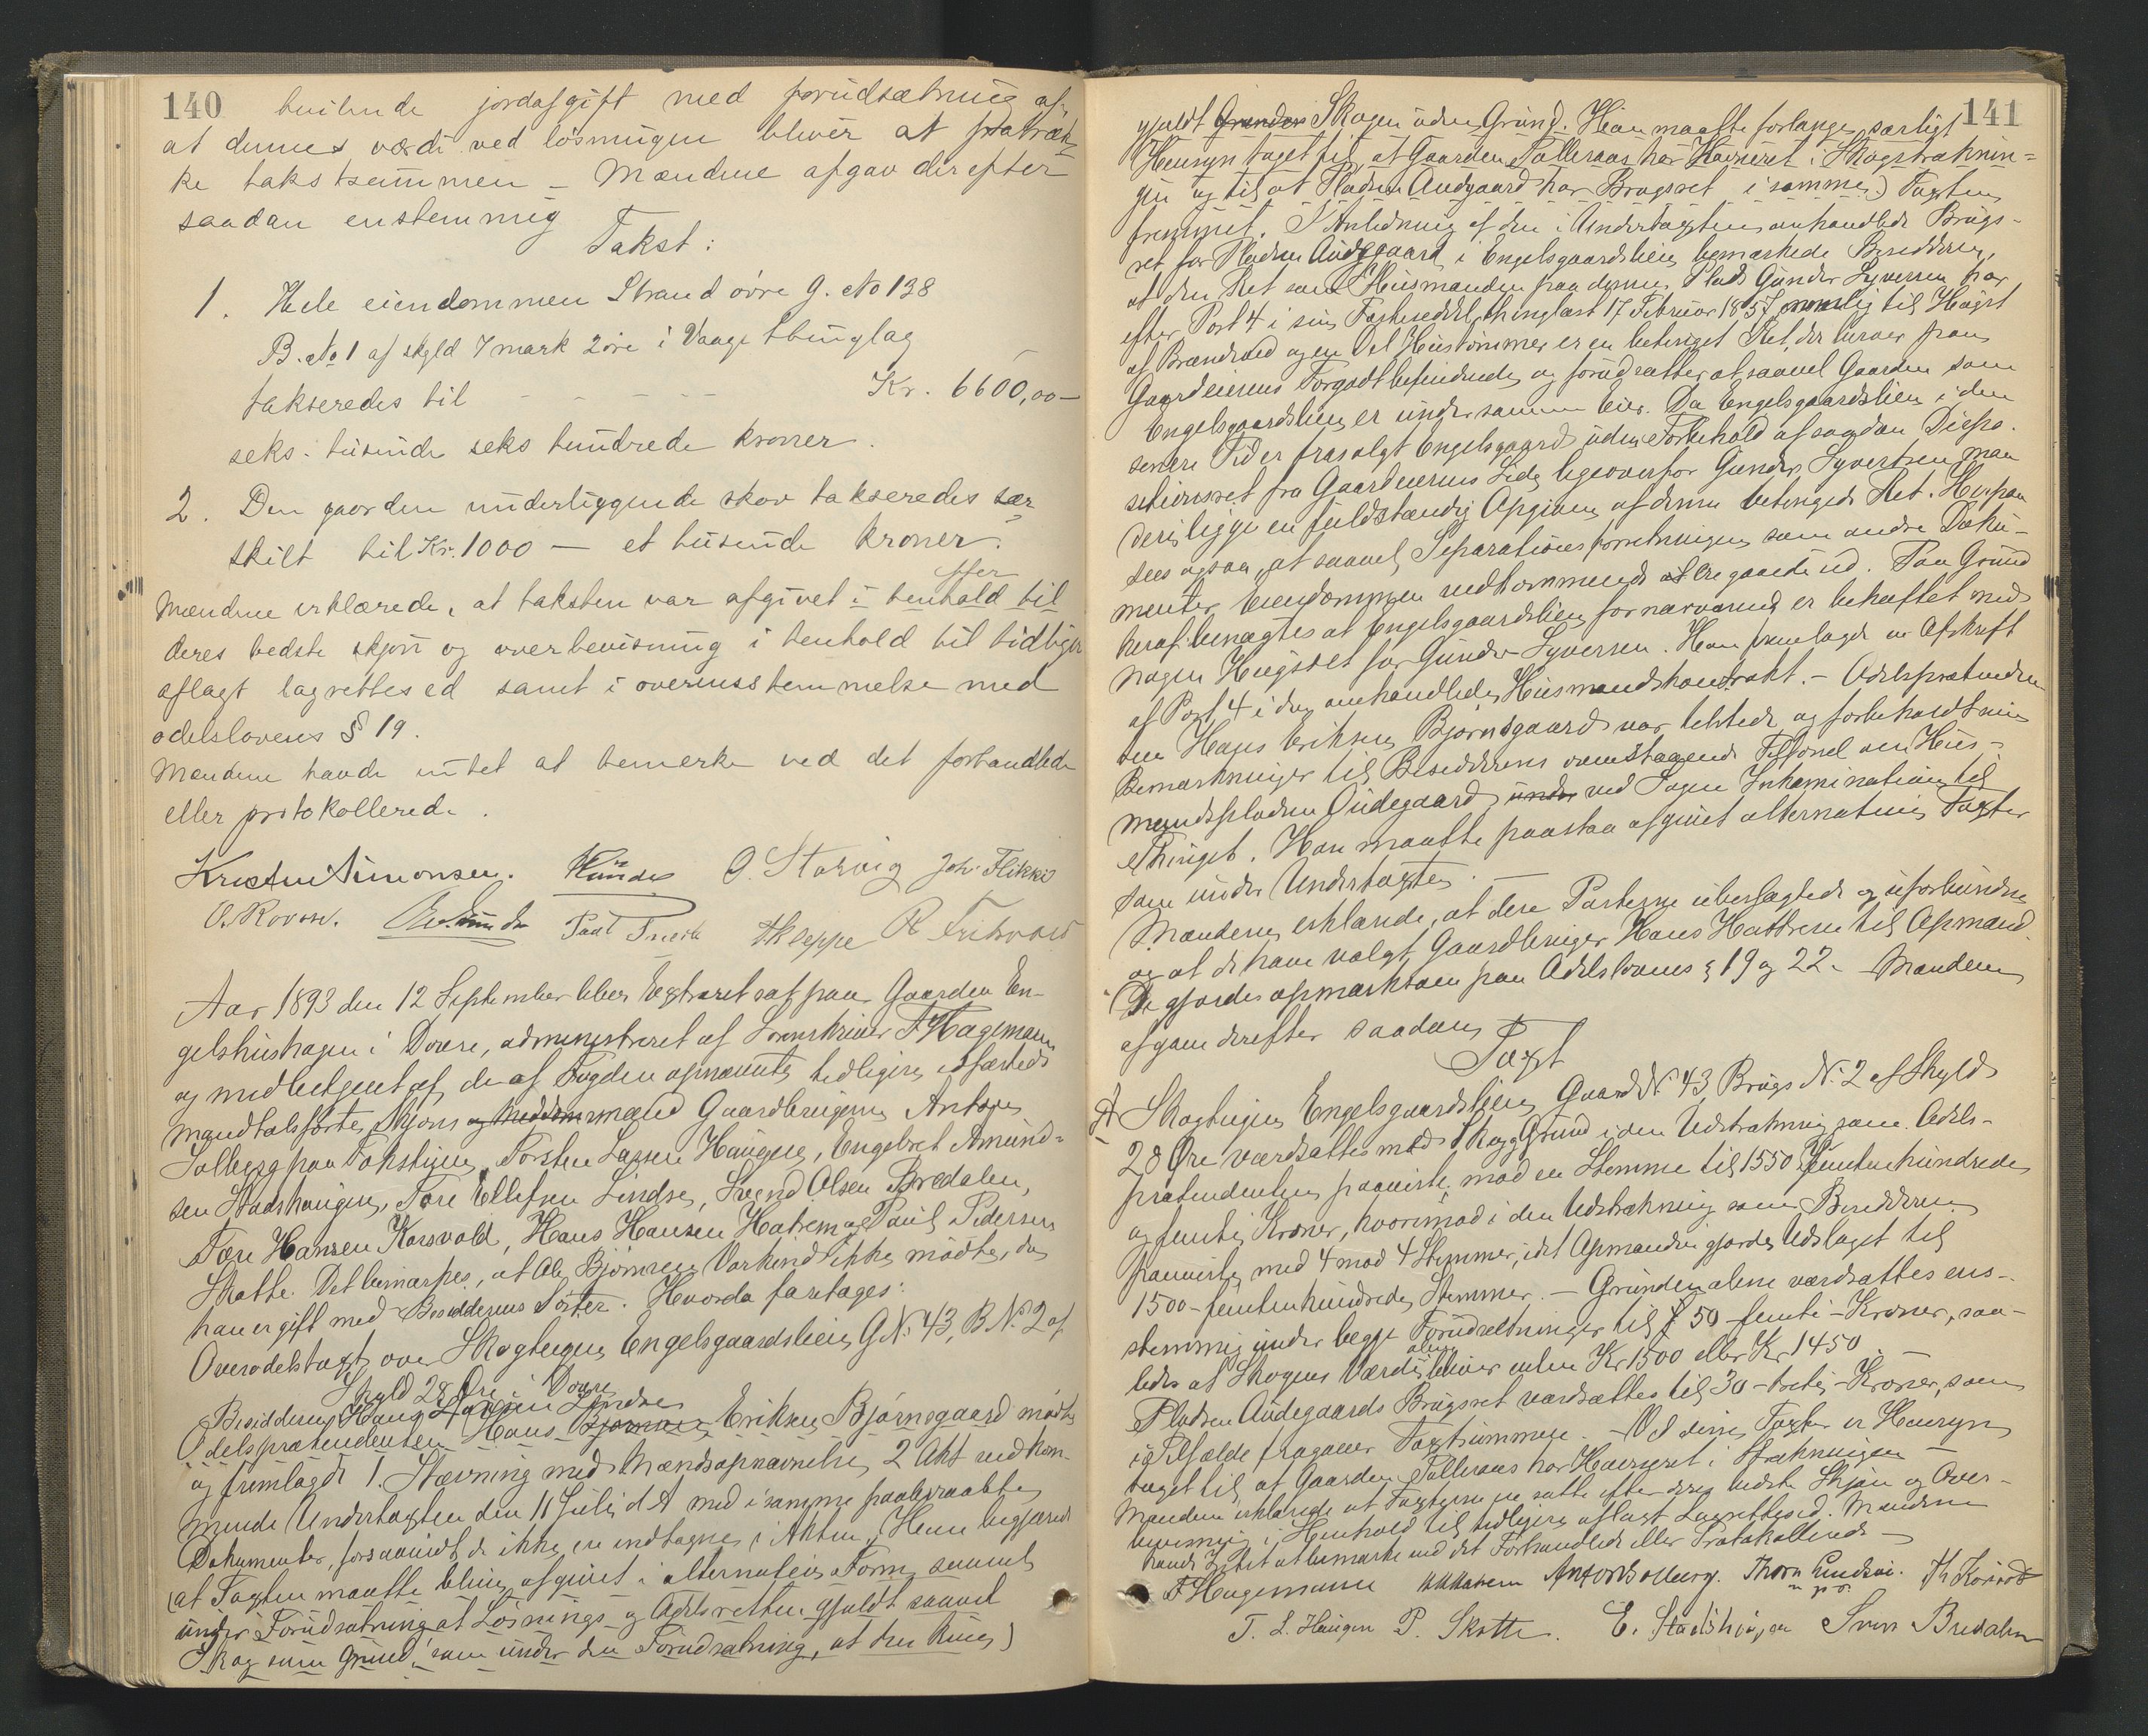 140 hvilende jordafgift med forudsætning af
at dennes værdi ved løsningen bliver at fratræk-
ke takstsummen – Mændene afgav derefter
saadan enstemmig
Takst:
1. Hele eiendommen Strand øvre G. No 138
B. No 1 af skyld 7 mark 2 øre i Vaage thinglag
takseredes til – – – – – Kr. 6600,00 –
seks tusinde seks hundrede kroner.
2. Den gaarden underliggende skov takseredes sær-
skilt til Kr. 1000 — et tusinde kroner.
Mændene erklærede, at taksten var afgivet i henhold til
efter
deres bedste skjøn og overbevisning i henhold til tidligere
aflagt lagrettesed samt i overensstemmelse med
odelslovens § 19.
Mændene havde intet at bemerke ved det forhandlede
eller protokollerede.
Kristen Simonsen. O. Storvig Joh. Flikke
Skleppe
Aar 1893 den 12 September blev Extraret sat paa Gaarden En-
gelshushagen i Dovre, administreret af Sorenskriver F Hagemann
og medbetjent af de af Fogden opnævnte, tidligere edfæstede
mandtalsførte Skjøns og Meddomsmænd Gaardbrugerne Anton
Solberg paa Tofteigen, Torsten Larsen Haugen, Engebret Amund-
sen Stadshaugen, Tore Ellefsen Lindse, Svend Olsen Bredalen,
Tore Hansen Korsvold, Hans Hansen Hatrem og Paul Pedersen
Skotte. Det bemærkes, at Ole Bjørnsen Vorkind ikke mødte, da
han er gift med Besidderens Søster. Hvorda foretages:
Overodelstaxt over Skogteigen Engelsgaardslien G. N. 43, B. N. 2 af
Skyld 28 Øre i Dovre
Besidderen Hans Larsen Lindse
Odelsprætendenten Hans Bjørnsen Eriksen Bjørnsgaard mødte
og fremlagde 1. Stævning med Mændsopnævnelse, 2 Akt vedkom-
mende Undertaxten den 11 Juli d. A. med i samme paaberaabte
Dokumenter, forsaavidt de ikke ere indtagne i Akten. Han begjærede
(at Taxten maatte blive afgivet i alternativ Form saavel
under Forudsætning at Løsnings- og Odelsretten gjaldt saavel
Skog som Grund, som under den Forudsætning, at den kun)
141
gjaldt Grunden Skogen uden Grund. Han maatte forlange særligt
Hensyn taget til, at Gaarden Tolleraas har Havneret i Skogstræknin-
gen og til at Pladsen Audgaard har Brugsret i samme.) Taxten
fremmet. I Anledning af den i Undertaxten omhandlede Brugs-
ret for Pladsen Audegaard i Engelsgaardslien bemærkede Besidderen,
at den Ret som Husmanden paa denne Plads Gunder Syversen har
efter Post 4 i sin Fæsteseddel, thinglæst 17 Februar 1857, nemlig til Hugst
af Brændeved og en Del Hustømmer er en betinget Ret, der beror paa
Gaardeierens Forgodtbefindende og forudsætter at saavel Gaarden som
Engelsgaardslien er under samme Eier. Da Engelsgaardslien i den
senere Tid er frasolgt Engelsgaard uden Forbehold af saadan Dispo-
sitionsret fra Gaardeierens Side ligeoverfor Gunder Syvertsen maa
deri ligge en fuldstændig Opgivelse af denne betingede Ret. Herpaa
sees ogsaa, at saavel Separationsforretningen som andre Doku-
menter, Eiendommen vedkommende at ere gaaede ud. Paa Grund
heraf benægtes at Engelsgaardslien for nærværende er beheftet med
nogen Hugstret for Gunder Syversen. Han fremlagde en Afskrift
af Post 4 i den omhandlede Husmandskontrakt. – Odelsprætenden-
ten Hans Eriksen Bjørnsgaard var tilstede og forbeholdt sine
Bemærkninger til Besidderens ovenstaaende Tilførsel om Hus-
mandspladsen Audegaard under ved Sagens Inkamination til
Thinget. Han maatte paastaa afgivet alternative Taxter
som under Undertaxten. —
Mændene erklærede, at dere Parterne ubeslægtede og uforbundne
og at de have valgt Gaardbruger Hans Hattrem til Opmand.
De gjordes opmærksom paa Odelslovens § 19 og 22. – Mændene
afgav derefter saadan
Taxt
A Skogteigen Engelsgaardslien, Gaards N. 43, Brugs N. 2 af Skyld
28 Øre værdsattes med Skog og Grund i den Udstrækning som Odels-
prætendenten paaviste, mod en Stemme til 1550 femtenhundrede
og femti Kroner, hvorimod i den Udstrækning som Besidderen
paaviste med 4 mod 4 Stemmer, idet Opmanden gjorde Udslaget til
1500 – femtenhundrede Stemmer. – Grunden alene værdsattes ens-
stemmig under begge Forudsætninger til 50 – femti – Kroner, saa-
ledes at Skogens Værdi alene bliver enten Kr 1500 eller Kr 1450. –
Pladsen Audegaards Brugsret værdsættes til 30 – treti – Kroner, som
i Tilfælde fragaaer Taxtsummen. – Ved disse Taxter er Hensyn
taget til, at Gaarden Tolleraas har Havneret i Strækningen –
Mændene erklærede at Taxterne ere satte efter deres bedste Skjøn og Over-
bevisning i Henhold til tidligere aflagt Lagrettesed. Mændene
havde Intet at bemærke ved det Forhandlede eller Protokollerede –
F Hagemann HHHatrem Anton Solberg. Thore Lindse. Th Korsvold
m. p. P.
T. L. Haugen P. Skotte. E. Stadshaugen Sven Bredalen